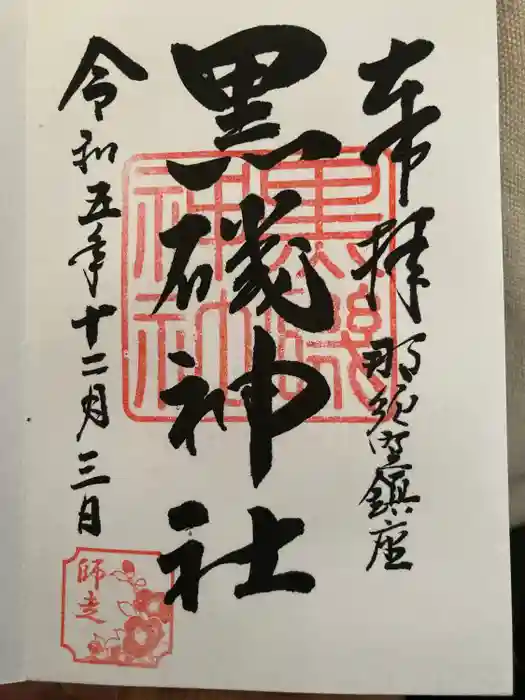 奉拝
那須野鎮座
黒磯神社
黒磯神社
令和五年十二月三日
師走